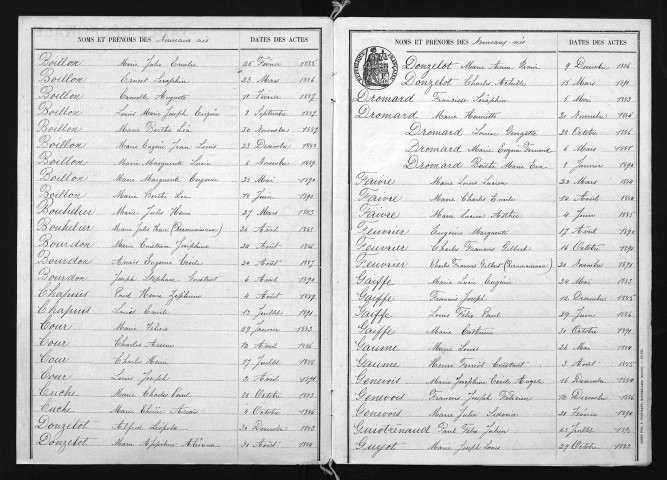 NOMS ET PRÉNOMS DES Nouveaux-nés DATES DES ACTES
Boillon Marie Julie 25 Février 1885
Boillon Ernest Séraphin 23 Mars 1886
Boillon Camille Auguste 12 Février 1887
Boillon Louis Marie Joseph Eugène 8 Septembre 1887
Boillon Marie Berthe Léa 30 Novembre 1887
Boillon Marie Eugène Jean Louis 23 Décembre
Boillon Marie Marguerite 6 Novembre 1889
Boillon Marie Marguerite Eugénie 21 Mai 1890
Boillon Marie Berthe 12 Juin 1890
Bouhélier Marie Jules Henri 27 Mars 1883
Bouhélier Marie Jules Henri (Reconnaissance) 26 Avril 1883
Bourdon Marie Constance Joséphine 24 Août
Bourdon Marie Eugénie Cécile 24 Août 1887
Bourdon Joseph Stéphane Constant 6 Avril 1890
Chapuis Paul Henri Zéphirin 4 Août 1889
Chapuis Louis Emile 13 Juillet 1891
Cour Marie 29 Janvier 1883
Cour Charles Arsène 12 Avril 1886
Cour Charles Henri 17 Juillet 1888
Cour Louis Joseph 2 Avril 1891
Cuche Marie Charles Paul 20 Octobre 1883
Cuche Marie 4 Octobre 1886
Donzelot Alfred Léopold 30 Décembre 1883
Donzelot Marie 30 Août 1884
NOMS ET PRÉNOMS DES Nouveaux-nés DATES DES ACTES
Donzelot Marie 9 Décembre 1886
Donzelot Charles Achille 15 Mars 1891
Dromard Françoise Séraphin 5 Mai 1883
Dromard Marie Henriette 20 Novembre
Dromard Louise Georgette 20 Octobre 1886
Dromard Marie Eugène Fernand 6 Mars 1888
Dromard Berthe Marie 8 Janvier 1890
Faivre Marie Louis Lucien 20 Mars 1884
Faivre Marie Charles Emile 14 Avril 1884
Faivre Marie Lucien 4 Juin 1885
Feuvrier Eugénie Marguerite 17 Août 1890
Feuvrier Charles François Gilbert 16 Octobre 1891
Feuvrier Charles François Gilbert (Reconnaissance) 20 Novembre 1891
Gaiffe Marie Lucie Eugénie 24 Mai 1883
Gaiffe Francis Joseph 12 Décembre 1885
Gaiffe Louis Félix Paul 29 Juin 1886
Gaiffe Marie Catherine 31 Octobre 1891
Gaume Marie Louis 26 Mai 1884
Gaume Henri Constant 3 Août 1885
Genevois Marie Joséphine Cécile Angèle 16 Décembre 1884
Genevois François Joseph 12 Décembre 1886
Genevois Marie Julie Suzanne 20 Février 1890
Guidrinaud Paul Félix Julien 23 Juillet
Guyot Marie Joseph Louis 29 Octobre 1883